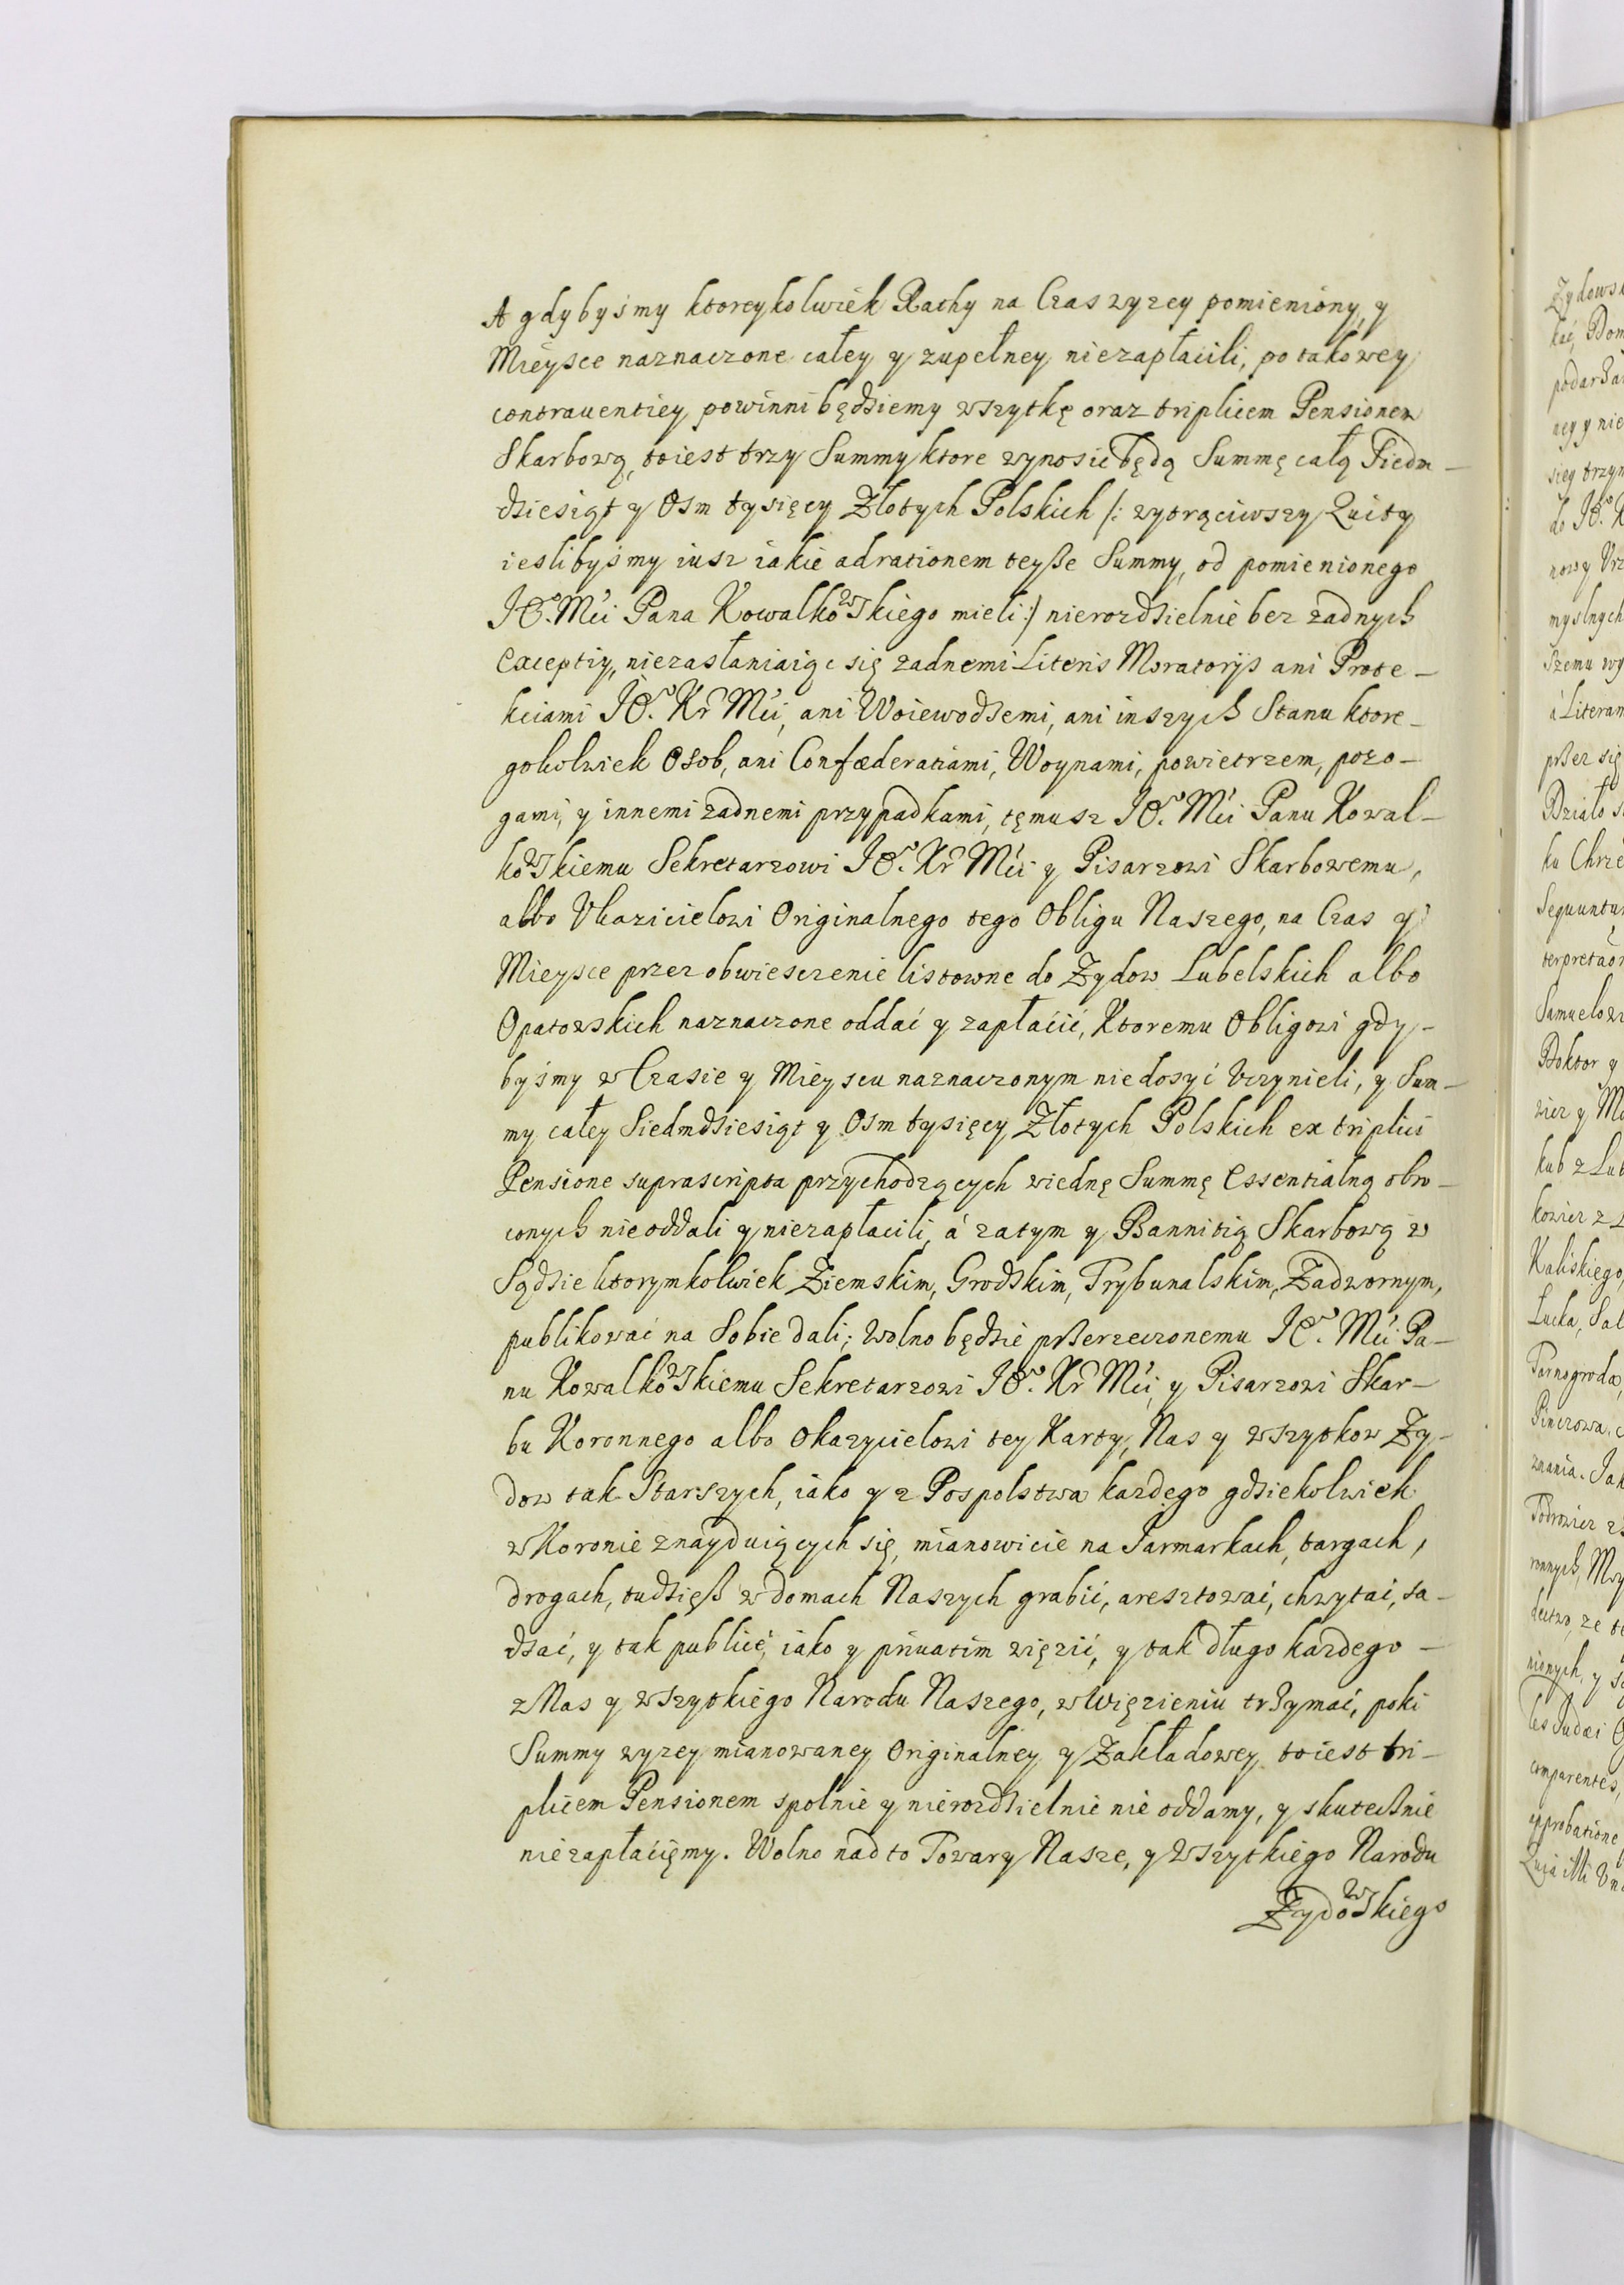 A gdybyśmy ktoreykolwiek Rathy na Czas wyzey pomieniony, y
Mieysce naznaczone całey y zupełney niezapłacili, po takowey
contrauentiey powinni będziemy wszytkę oraz triplicem Pensionem
Skarbową, toiest trzy Summy ktore wynosic będą Summę całą Siedm–
dziesiąt y Osm tysięcy Złotych Polskich /: wytrąciwszy Quity
ieslibyśmy iusz iakie ad rationem teyße Summy, od pomienionego
Jeo. Mći Pana Kowalkowskiego mieli :/ nierozdzielnie bez zadnych
exceptiy, niezasłaniaiąc się zadnemi Literis Moratorijs ani Prote–
kciami Jeo. Kr Mći, ani Woiewodzemi, ani inszych Stanu ktore–
gokolwiek Osob, ani Confæderatiami, Woynami, powietrzem, pozo–
gami, y innemi zadnemi przypadkami, tęmusz Jeo. Mći Panu Kowal–
kowskiemu Sekretarzowi Jeo. Kr Mći y Pisarzowi Skarbowemu,
albo Vkazicielowi Originalnego tego Obligu Naszego, na Czas y
Mieysce przez obwieszczenie listowne do Zydow Lubelskich albo
Opatowskich naznaczone oddać y zapłacić, Ktoremu Obligowi gdy–
byśmy w Czasie y Mieyscu naznaczonym niedosyć Vczynieli, y Sum–
my całey Siedmdziesiąt y Osm tysięcy Złotych Polskich ex triplici
Pensione suprascripta przychodzących wiednę Summę Essentialną obro–
conych nieoddali y niezapłacili, á zatym y Bannitią Skarbową w
Sądzie ktorymkolwiek Ziemskim, Grodskim, Trybunalskim, Zadwornym,
publikować na Sobie dali; Wolno będzie przerzeczonemu Jeo. Mći Pa–
nu Kowalkowskiemu Sekretarzowi Jeo. Kr Mći, y Pisarzowi Skar–
bu Koronnego albo Okazycielowi tey Karty, Nas y wszytkow Zy–
dow tak Starszych, iako y z Pospolstwa kazdego gdziekolwiek
w Koronie znayduiących się, mianowicie na Jarmarkach, targach,
drogach, tudzięß w domach Naszych grabić, aresztować, chwytać, sa–
dzać, y tak publicè, iako y priuatim więzić, y tak długo kazdego –
z Nas y wszytkiego Narodu Naszego, w Więzieniu trzymać, poki
Summy wyzey mianowaney Originalney y Zakładowey toiest tri–
plicem Pensionem spolnie y nierozdzielnie nie oddamy, y skutecznie
niezapłacięmy. Wolno nad to Towary Nasze, y Wszytkiego Narodu
Zydowskiego